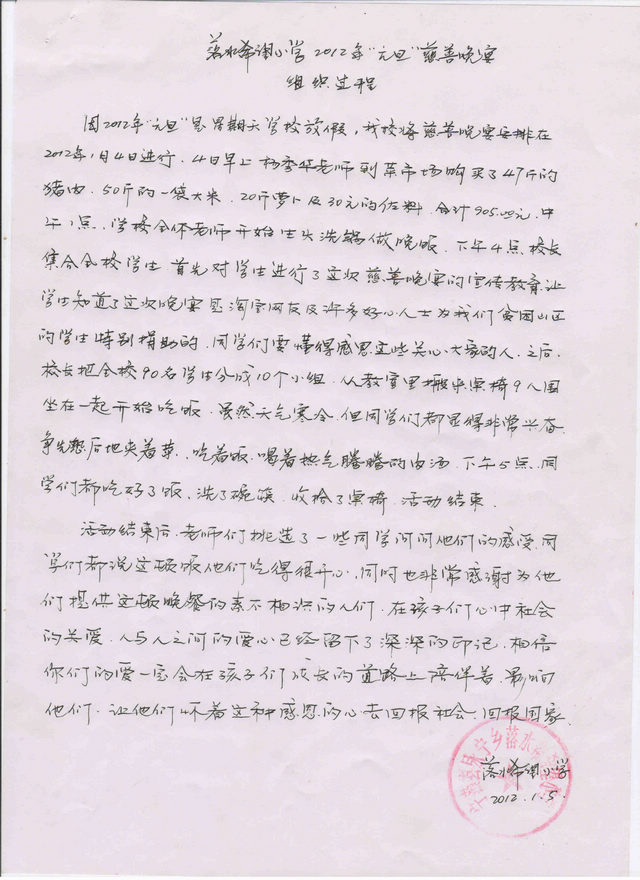 落水希调小学2012年"元旦"慈善晚宴
组织过程
因2012年"元旦"是星期天学校放假,我校将慈善晚宴安排在
2012年1月4日进行.4日早上杨季华老师到菜市场购买了47斤的
猪肉.50斤的一袋大米.20斤萝卜及30元的佐料.合计905.00元.中
午1点.学校全体老师开始生火洗锅做晚饭.下午4点校长
集合全校学生首先对学生进行了这次慈善晚宴的宣传教育让
学生知道了这次晚宴是淘宝网友及许多好心人士为我们贫困山区
的学生特别捐助的.同学们要懂得感恩这些关心大家的人.之后.
校长把全校90名学生分成10个小组.从教室里搬出桌椅9人围
坐在一起开始吃饭.虽然天气寒冷.但同学们都显得非常兴奋.
争先恐后地夹着菜、吃着饭.喝着热气腾腾的肉汤.下午5点.同
学们都吃好了饭、洗了碗筷.收拾了桌椅.活动结束.
活动结束后.老师们挑选了一些同学问问他们的感受.同
学们都说这顿饭他们吃得很开心.同时也非常感谢为他
们提供这顿晚餐的素不相识的人们.在孩子们心中社会
的关爱.人与人之间的爱心已经留下了深深的印记.相信
你们的爱一定会在孩子们成长的道路上陪伴着.影响
他们.让他们怀着这种感恩的心去回报社会.回报国家.
落水希调小学
2012.1.5.